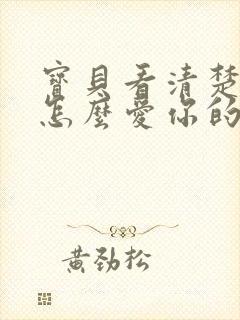 寶貝看清楚
怎麼愛你的
黃勁松